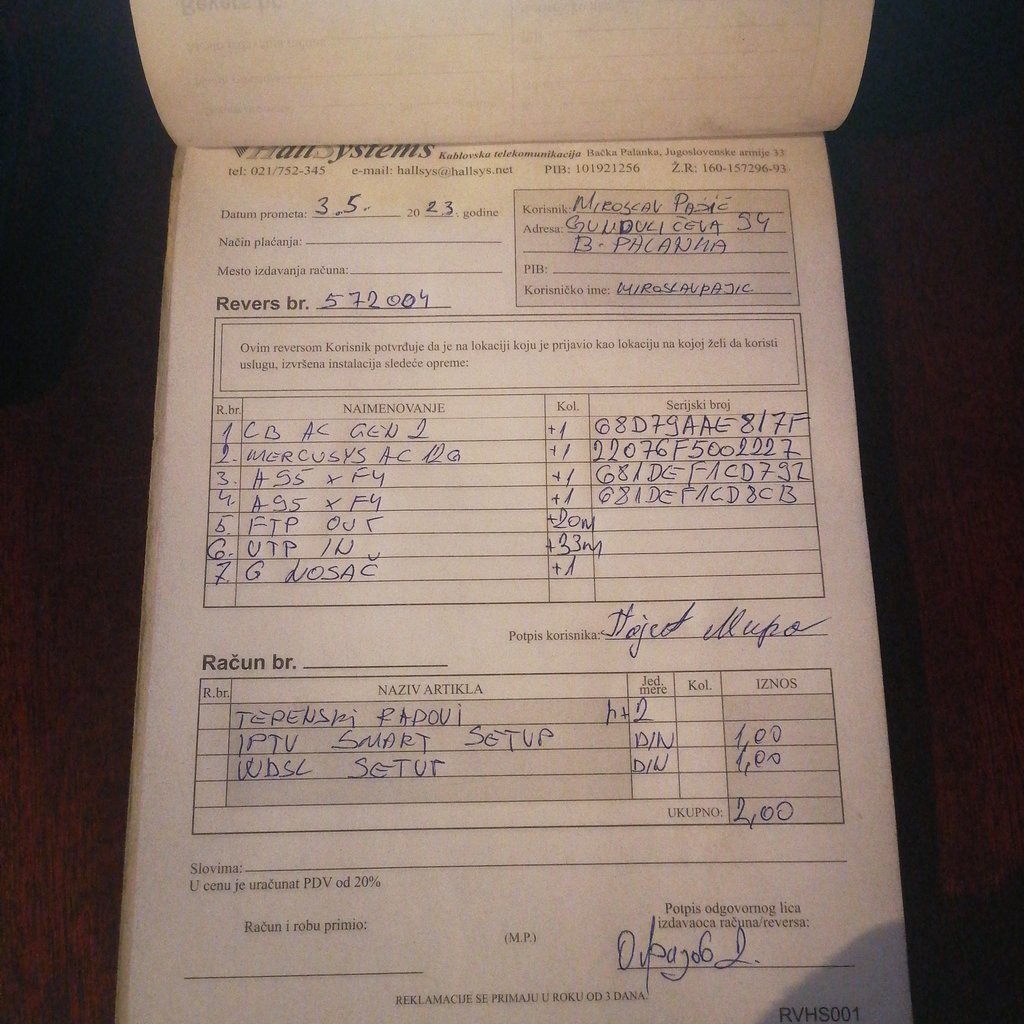 HallSystems Kablovska telekomunikacija Bačka Palanka, Jugoslovenske armije 33
tel: 021/752-345 e-mail: hallsys@hallsys.net PIB: 101921256 Ž.R: 160-157296-93
Datum prometa: 3.5. 2023. godine
Način plaćanja:
Mesto izdavanja računa:
Revers br. 572004
Korisnik: MIROSLAV PAJIĆ
Adresa: GUNDULIĆEVA 94
B. PALANKA
PIB:
Korisničko ime: MIROSLAVPAJIC
Ovim reversom Korisnik potvrđuje da je na lokaciji koju je prijavio kao lokaciju na kojoj želi da koristi
uslugu, izvršena instalacija sledeće opreme:
R.br. NAIMENOVANJE Kol. Serijski broj
1 CB AC GEN 2 +1 68D79AAE817F
2. MERCUSYS AC 12G +1 22076F5002227
3. A95 x F4 +1 681DEF1CD792
4. A95 x F4 +1 681DEF1CD8CB
5. FTP OUT +20m
6. UTP IN +33m
7. G NOSAČ +1
Potpis korisnika:
Račun br.
R.br. NAZIV ARTIKLA Jed. mere Kol. IZNOS
TEPENSKI RADOVI h+2
IPTV SMART SETUP DIN 1,00
WDSL SETUP DIN 1,00
UKUPNO: 2,00
Slovima:
U cenu je uračunat PDV od 20%
Račun i robu primio:
(M.P.)
Potpis odgovornog lica
izdavaoca računa/reversa:
REKLAMACIJE SE PRIMAJU U ROKU OD 3 DANA.
RVHS001